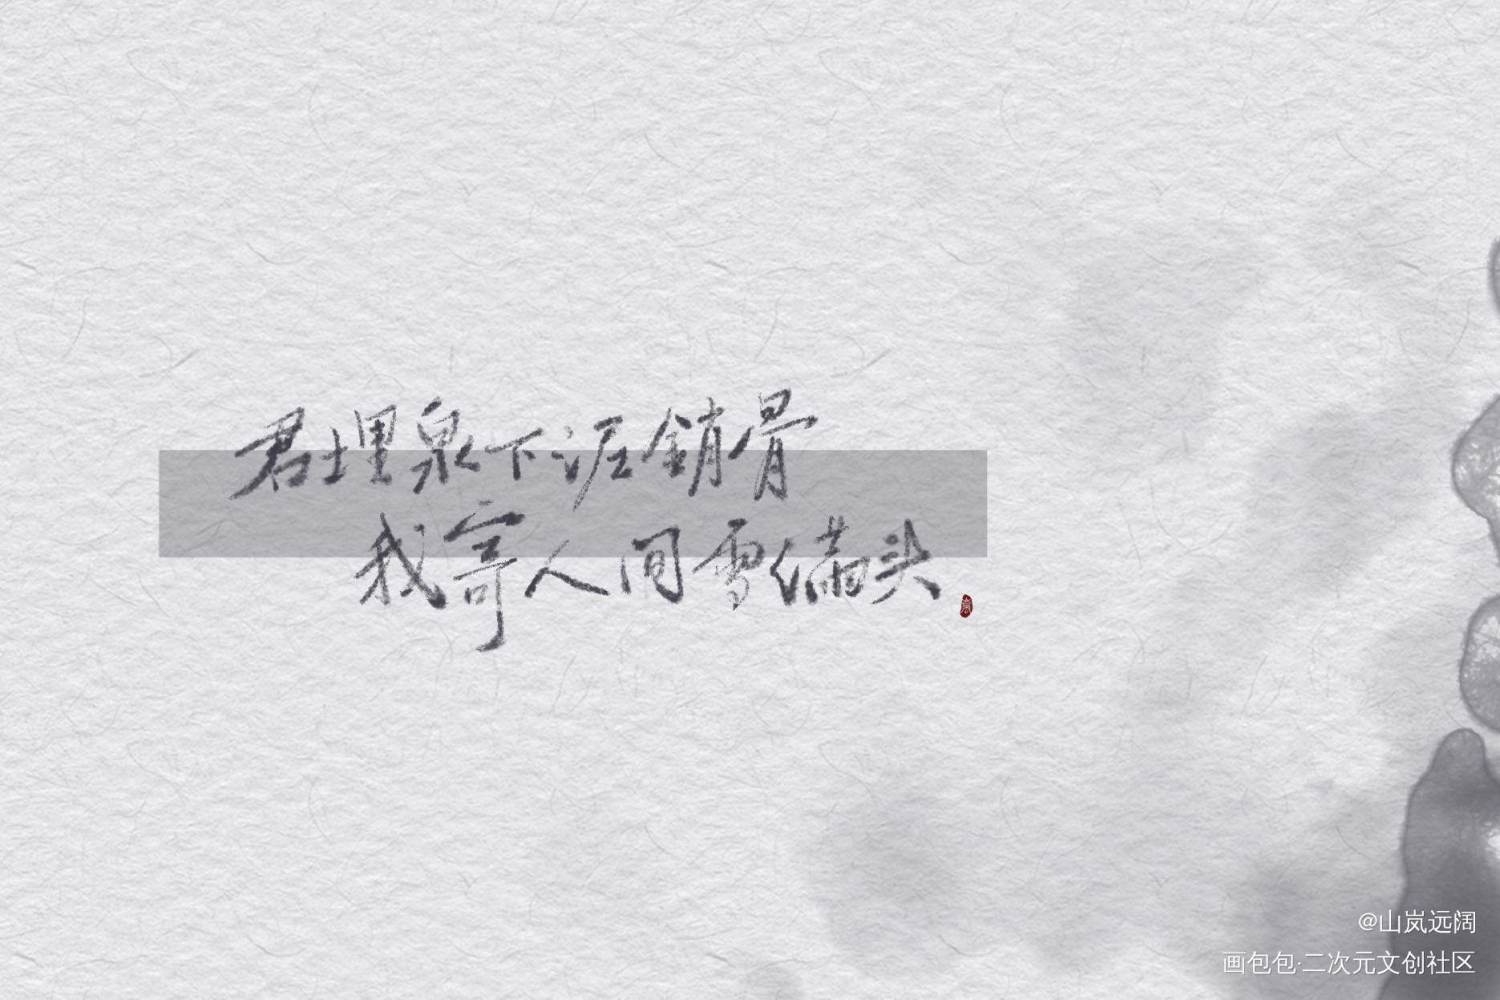 君埋泉下泥銷骨
我寄人间雪满头
@山岚远阔
画包包·二次元文创社区